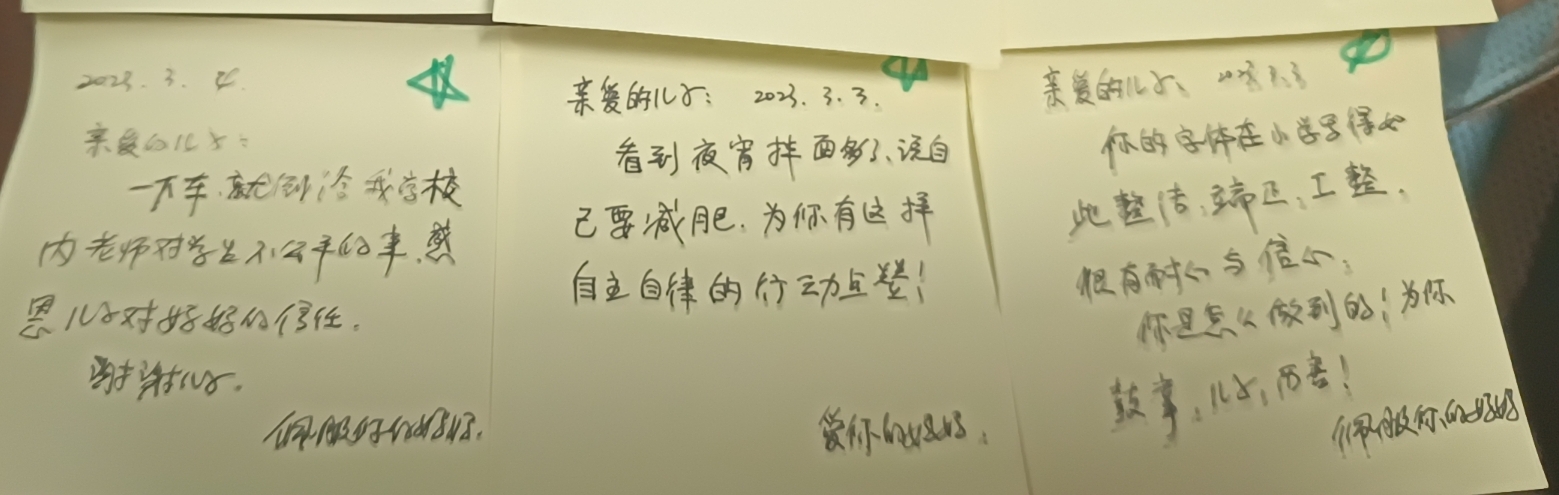 2023.3.4.
亲爱的儿子:
一下车,就倒给我学校
内老师对学生不公平的事,感
恩儿子对妈妈的信任.
谢谢儿子.
佩服你的妈妈.
亲爱的儿子: 2023.3.3.
看到夜宵拌面多了、说自
己要减肥.为你有这样
自主自律的行动点赞!
爱你的妈妈.
亲爱的儿子、 2023.3.3
你的字体在小学写得如
此整洁,端正,工整,
很有耐心与信心,
你是怎么做到的!为你
鼓掌,儿子,厉害!
佩服你的妈妈